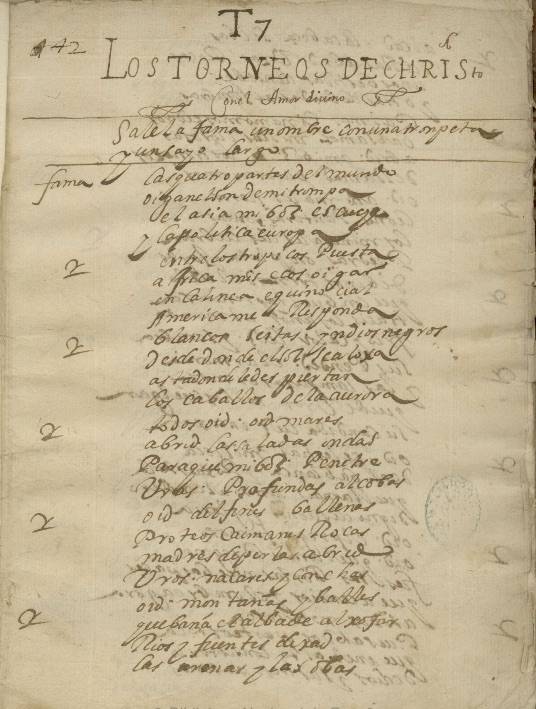 T 7
142
LOS TORNEOS DE CHRISto
Con el Amor divino
Sale la fama un ombre con una trompeta
y un sayo largo
fama las quatro partes del mundo
oigan el son de mi trompa
el asia mi boz escuge
y la politica europa
entre los tropicos Puesta
africa mis ecos oiga
en la linea equinocial
America me Responda
blancos scitas yndios negros
desde donde el sol se aloxa
asta donde le despiertan
los caballos de la aurora
todos oid oid mares
abrid las saladas ondas
Para que mi boz Penetre
Vras Profundas alcobas
oid delfines ballenas
Proteos Caimanes Focas
madres de perlas abrid
Vros nacares y conchas
oid montañas y balles
que baña el alba de alxofar
Rios y fuentes dexad
las arenas y las obas